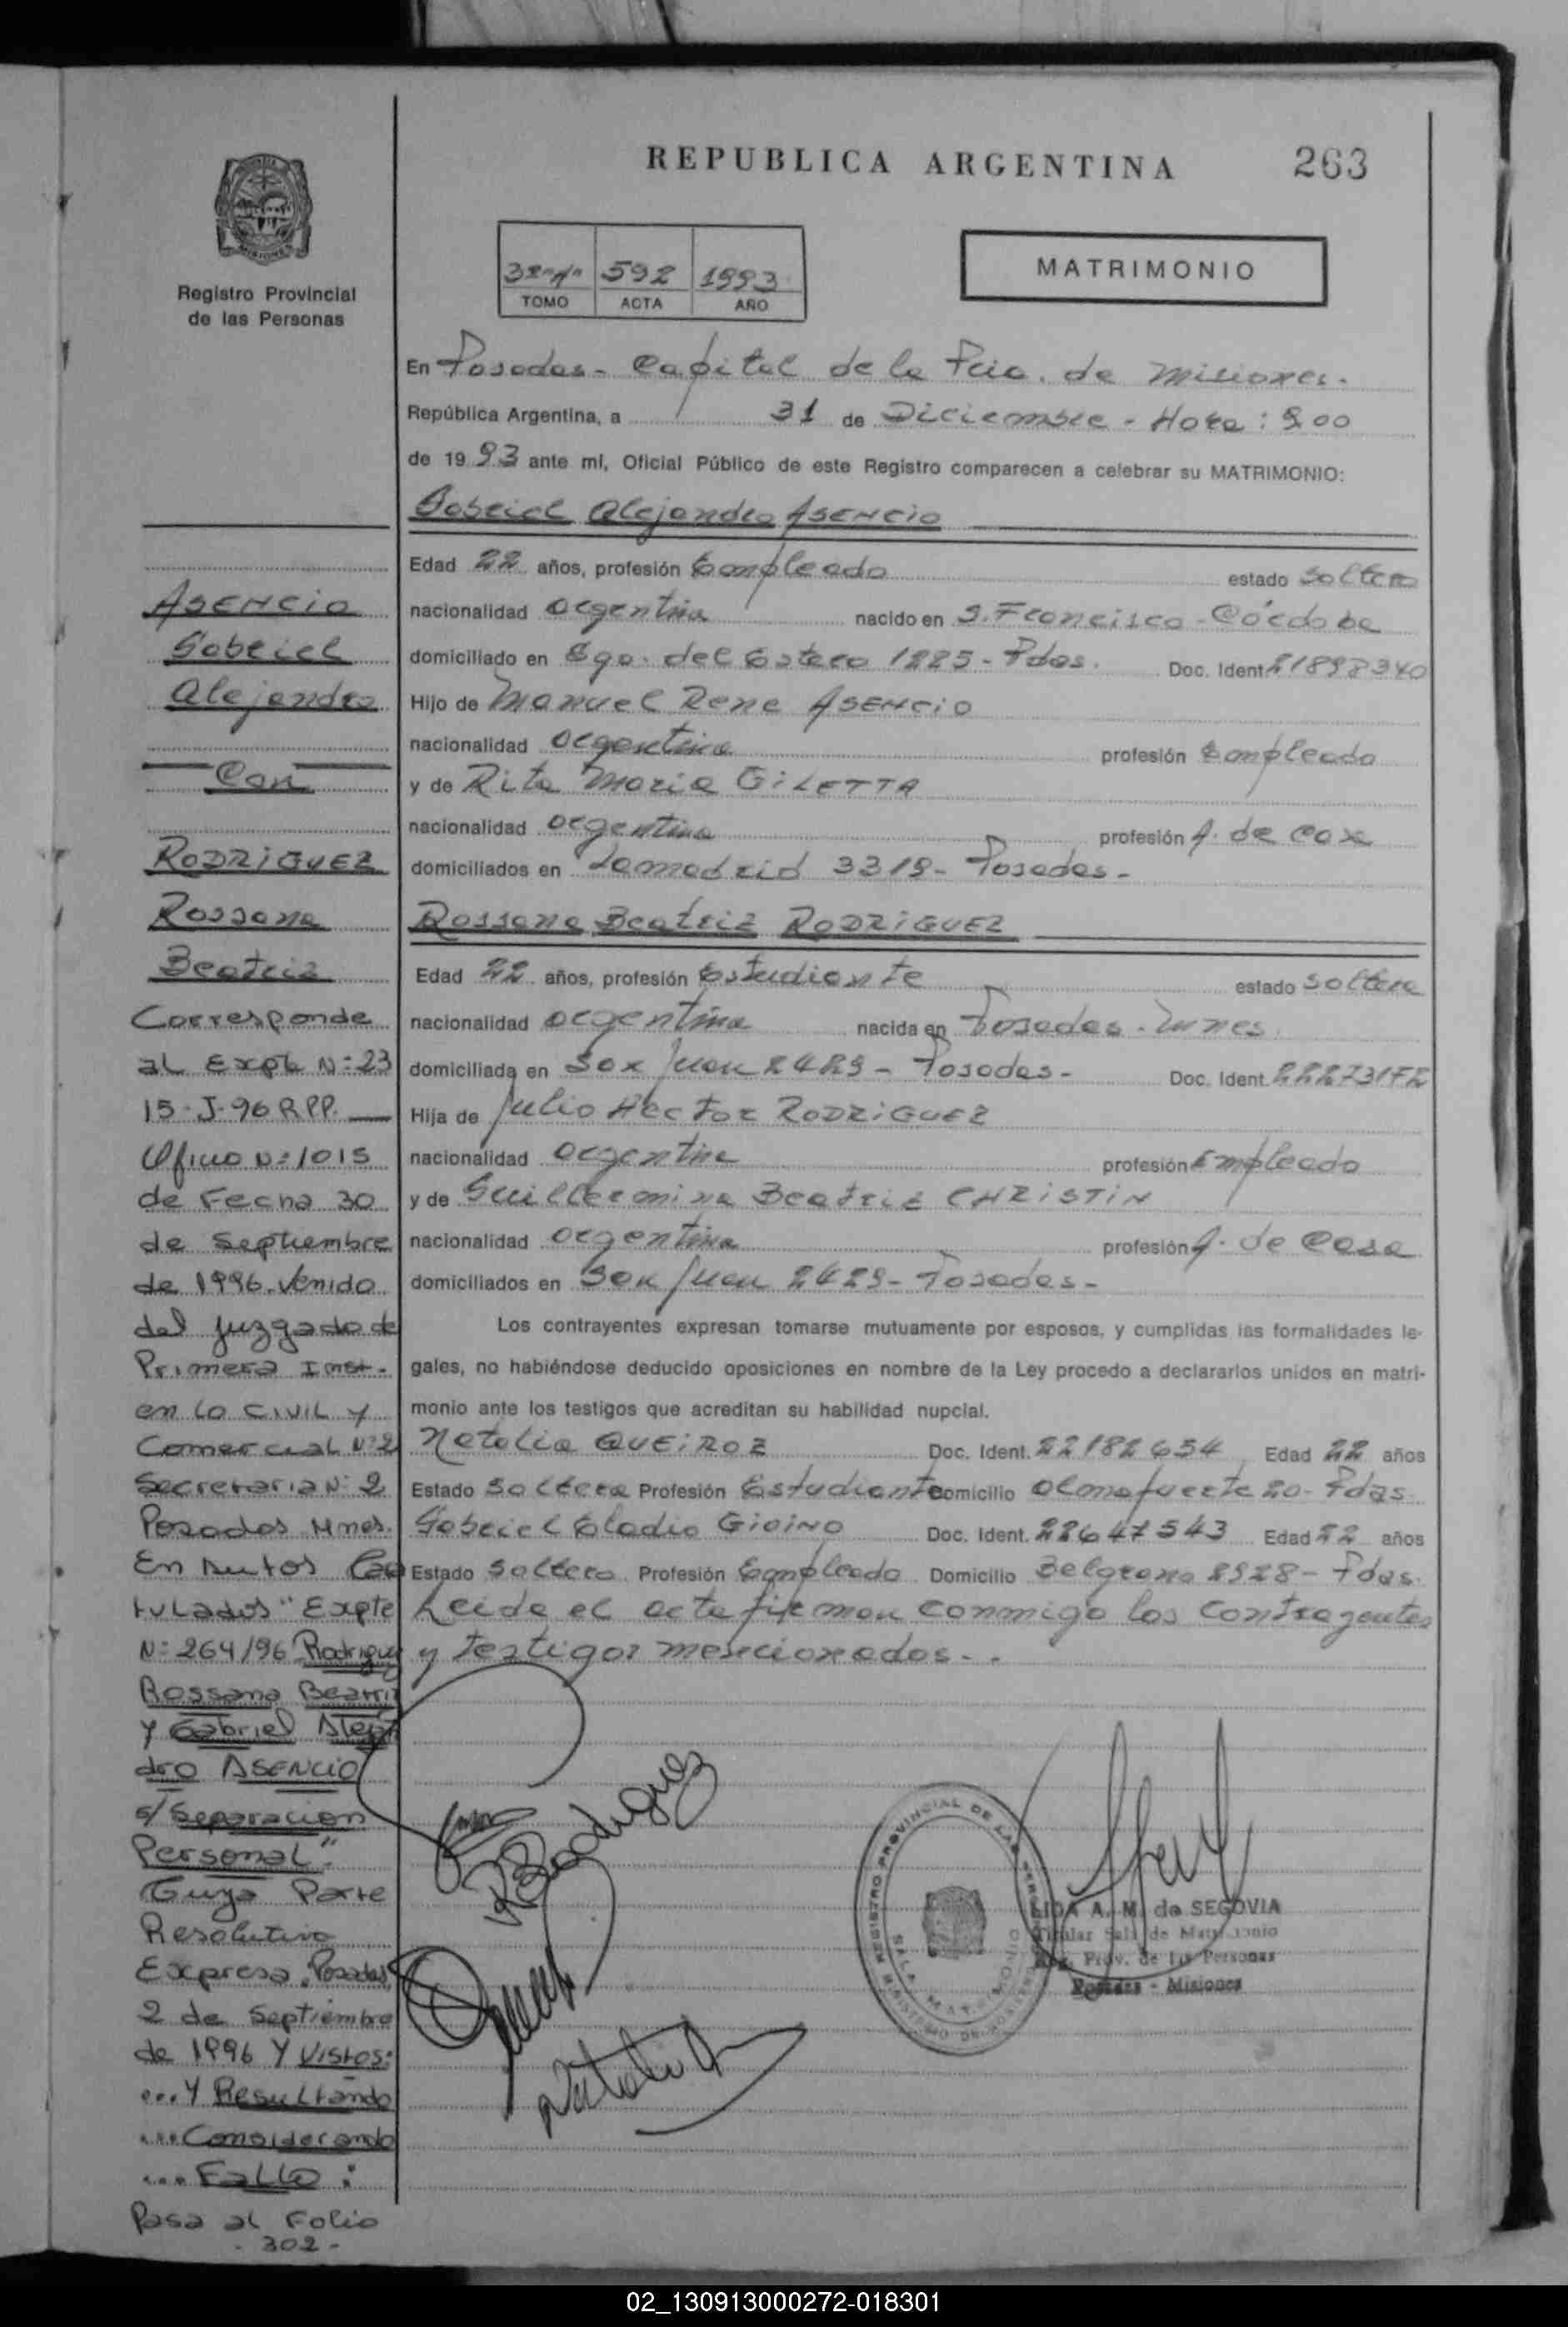 REPUBLICA ARGENTINA
263
MISIONES
Registro Provincial
de las Personas
592 1993
TOMO ACTA AÑO
MATRIMONIO
En Posadas - Capital de la Pcia. de Misiones.
República Argentina, a 31 de Diciembre - Hora: 9.00
de 1993 ante mí, Oficial Público de este Registro comparecen a celebrar su MATRIMONIO:
Gabriel Alejandro ASENCIO
Edad 22 años, profesión Empleado estado Soltero
nacionalidad argentina nacido en S. Francisco - Córdoba
domiciliado en Sgo. del Estero 1225 - Pdas. Doc. Ident 21898340
Hijo de Manuel Rene ASENCIO
nacionalidad argentina profesión Empleado
y de Rita Maria GILETTA
nacionalidad argentina profesión A. de casa
domiciliados en Lamadrid 3319 - Posadas -
Rossana Beatriz RODRIGUEZ
Edad 22 años, profesión Estudiante estado Soltera
nacionalidad argentina nacida en Posadas - Mnes
domiciliada en San Juan 2429 - Posadas - Doc. Ident.
Hija de Julio Hector RODRIGUEZ
nacionalidad argentina profesión Empleado
y de Guillermina Beatriz CHRISTIN
nacionalidad argentina profesión A. de Casa
domiciliados en San Juan 2429 - Posadas -
Los contrayentes expresan tomarse mutuamente por esposos, y cumplidas las formalidades le-
gales, no habiéndose deducido oposiciones en nombre de la Ley procedo a declararlos unidos en matri-
monio ante los testigos que acreditan su habilidad nupcial.
Natalia QUEIROZ Doc. Ident. 22182654 Edad 22 años
Estado Soltera Profesión Estudiante Domicilio Almafuerte 20 - Pdas.
Gabriel Eladio Doc. Ident. 22647543 Edad 22 años
Estado Soltero Profesión Empleado Domicilio Belgrano - Pdas.
Leida el acta firman conmigo los contrayentes
y testigos mencionados - .
ASENCIO
Gabriel
Alejandro
Con
RODRIGUEZ
Rossana
Beatriz
Corresponde
al Expte N: 23
15-J-96 R.P.P.
Oficio N: 1015
de Fecha 30
de Septiembre
de 1996. Venido
del Juzgado de
Primera Inst.
en lo Civil y
Comercial N: 2
Secretaria N: 2
Posadas Mnes.
En Autos Ca
tulados "Expte
N: 264/96 Rodriguez
Rossana Beatriz
y Gabriel Alejan
dro ASENCIO
s/ Separacion
Personal".
Cuya Parte
Resolutiva
Expresa. Posadas,
2 de Septiembre
de 1996 Y Vistos:
... Y Resultando
... Considerando
... Fallo:
Pasa al Folio
- 302 -
R B Rodriguez
REGISTRO PROVINCIAL DE LAS PERSONAS
SALA MATRIMONIO
LIDA A. M. de SEGOVIA
Titular Sala de Matrimonio
Reg. Prov. de las Personas
Posadas - Misiones
02_130913000272-018301